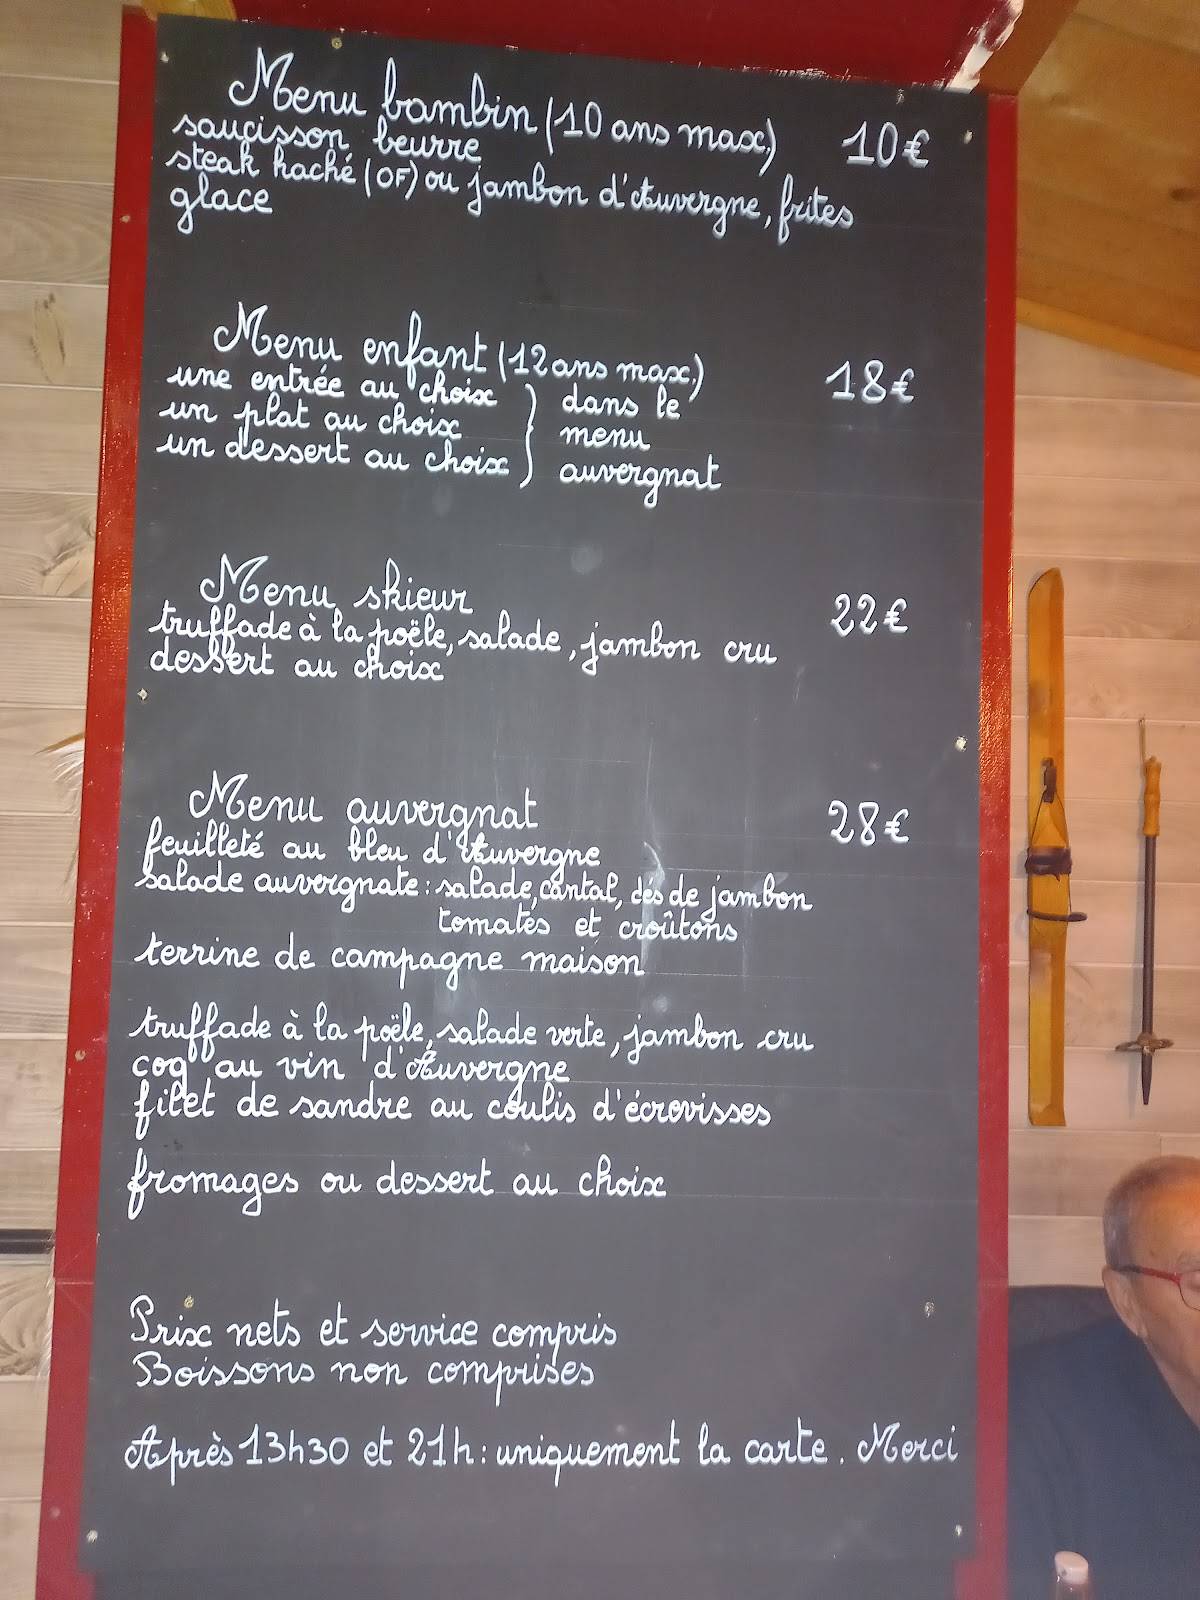 Menu bambin (10 ans max.) 10€
saucisson beurre
steak haché (OF) ou jambon d'Auvergne, frites
glace
Menu enfant (12 ans max.) 18€
une entrée au choix } dans le
un plat au choix } menu
un dessert au choix } auvergnat
Menu skieur 22€
truffade à la poële, salade, jambon cru
dessert au choix
Menu auvergnat 28€
feuilleté au bleu d'Auvergne
salade auvergnate : salade, cantal, dés de jambon
tomates et croûtons
terrine de campagne maison
truffade à la poële, salade verte, jambon cru
coq au vin d'Auvergne
filet de sandre au coulis d'écrevisses
fromages ou dessert au choix
Prix nets et service compris
Boissons non comprises
Après 13h30 et 21h : uniquement la carte. Merci